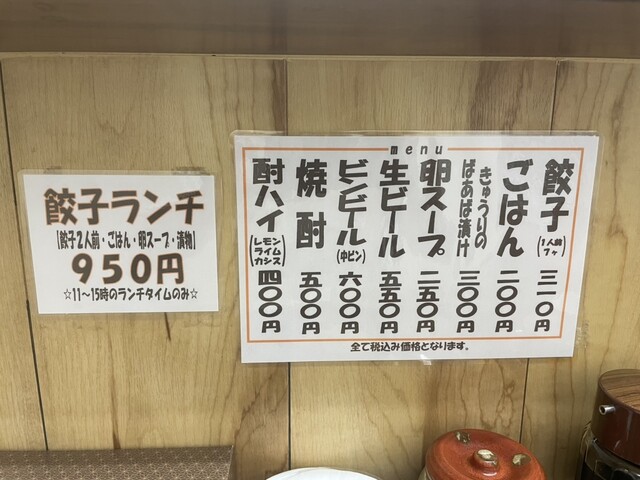 餃子ランチ
【餃子2人前・ごはん・卵スープ・漬物】
950円
☆11~15時のランチタイムのみ☆
menu
餃子(1人前7ヶ)三一〇円
ごはん二〇〇円
きゅうりのばあば漬け三〇〇円
卵スープ二五〇円
生ビール五五〇円
ビンビール(中ビン)六〇〇円
焼酎五〇〇円
酎ハイ(レモンライムカシス)四〇〇円
全て税込み価格となります。